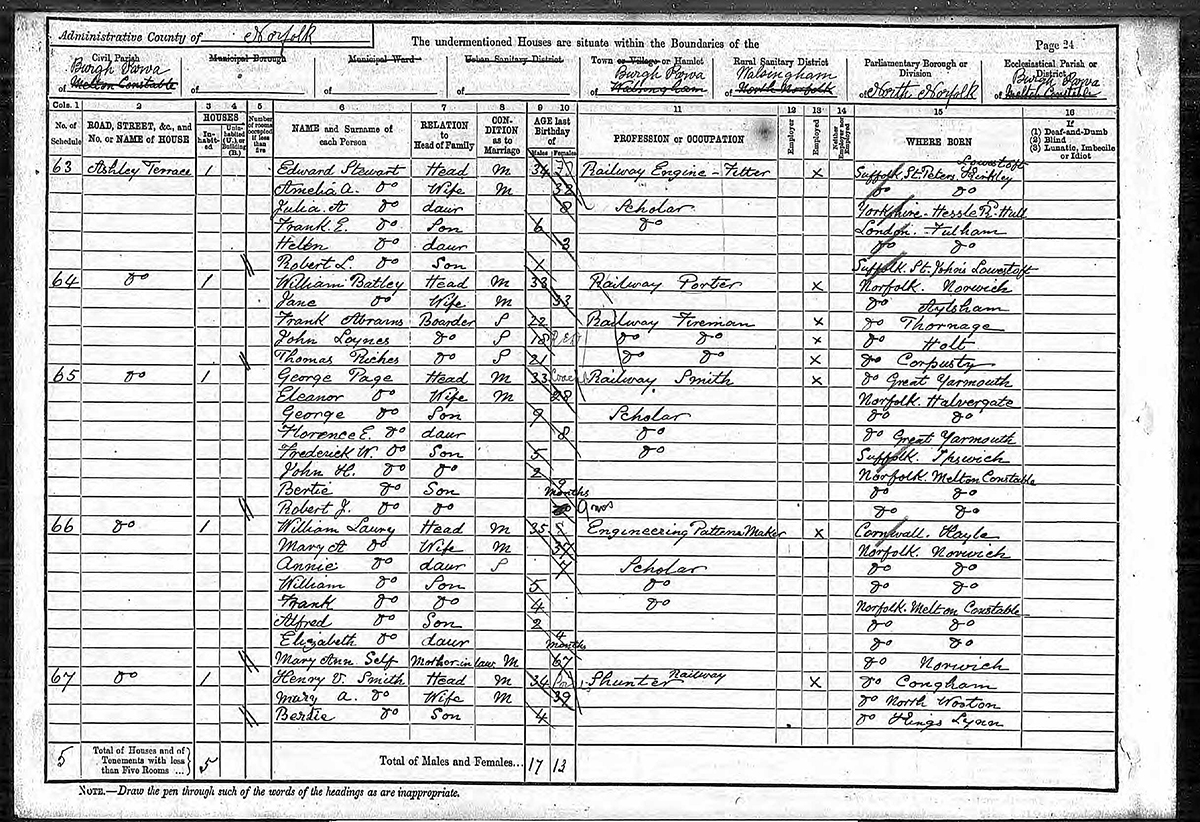 Administrative County of Norfolk
The undermentioned Houses are situate within the Boundaries of the
Page 24
Civil Parish
Municipal Borough
Municipal Ward
Urban Sanitary District
Town or Village or Hamlet
Rural Sanitary District
Parliamentary Borough or Division
Ecclesiastical Parish or District
of Burgh Parva Melton Constable
of
of
of
of Burgh Parva Walsingham
of Walsingham North Norfolk
of North Norfolk
of Burgh Parva Melton Constable
Cols. 1 2 3 4 5 6 7 8 9 10 11 12 13 14 15 16
No. of Schedule
ROAD, STREET, &c., and No. or NAME of HOUSE
HOUSES
Inhabited
Uninhabited (U.) or Building (B.)
Number of rooms occupied if less than five
NAME and Surname of each Person
RELATION to Head of Family
CONDITION as to Marriage
AGE last Birthday of
Males Females
PROFESSION or OCCUPATION
Employer
Employed
Neither Employer nor Employed
WHERE BORN
If
(1) Deaf-and-Dumb
(2) Blind
(3) Lunatic, Imbecile or Idiot
63 Ashley Terrace 1 Edward Stewart Head M 34 Railway Engine-Fitter x Suffolk. St. Peters Kirkley Lowestoft
Amelia A. Do Wife M 32 Do Do
Julia. A Do daur 8 Scholar Yorkshire. Hessle Rd. Hull
Frank. E. Do Son 6 Do London. Fulham
Helen Do daur 3 Do Do
Robert L. Do Son 1 Suffolk. St. John's Lowestoft
64 Do 1 William Batley Head M 33 Railway Porter x Norfolk. Norwich
Jane Do Wife M 33 Do Aylsham
Frank Abrams Boarder S 22 Railway Fireman x Do Thornage
John Loynes Do S 18 Do Do x Do Holt
Thomas Riches Do S 21 Do Do x Do Corpusty
65 Do 1 George Page Head M 33 Railway Smith x Do Great Yarmouth
Eleanor Do Wife M 28 Norfolk. Halvergate
George Do Son 9 Scholar Do Do
Florence E. Do daur 8 Do Do Great Yarmouth
Frederick W. Do Son 5 Do Suffolk. Ipswich
John H. Do Do 2 Norfolk. Melton Constable
Bertie Do Son 9 months Do Do
Robert J. Do Do 9 mos Do Do
66 Do 1 William Laury Head M 35 Engineering Pattern Maker x Cornwall. Hayle
Mary A Do Wife M 37 Norfolk. Norwich
Annie Do daur S 7 Scholar Do Do
William Do Son 5 Do Do Do
Frank Do Do 4 Do Norfolk. Melton Constable
Alfred Do Son 2 Do Do
Elizabeth Do daur 4 months Do Do
Mary Ann Self Mother in law M 67 Do Norwich
67 Do 1 Henry V. Smith Head M 34 Shunter Railway x Do Congham
Mary A. Do Wife M 39 Do North Wooton
Bertie Do Son 4 Do Kings Lynn
5 Total of Houses and of Tenements with less than Five Rooms ... 5 Total of Males and Females... 17 13
NOTE.—Draw the pen through such of the words of the headings as are inappropriate.